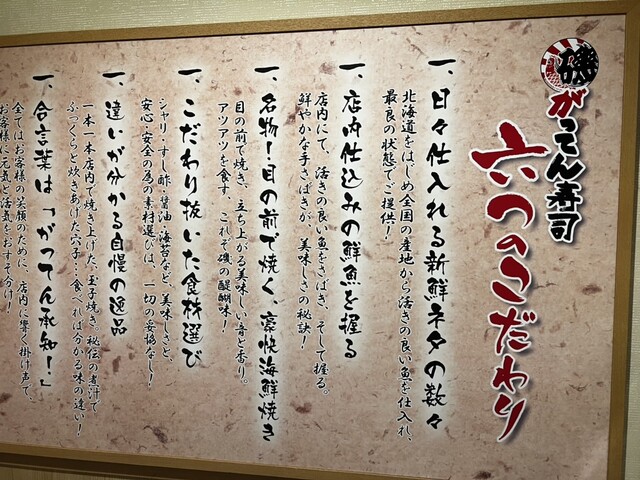 磯がってん寿司
六つのこだわり
一、日々仕入れる新鮮ネタの数々
北海道をはじめ全国の産地から活きの良い魚を仕入れ、
最良の状態でご提供！
一、店内仕込みの鮮魚を握る
店内にて、活きの良い魚をさばき、そして握る。
鮮やかな手さばきが、美味しさの秘訣！
一、名物！目の前で焼く、豪快海鮮焼き
目の前で焼き、立ち上がる美味しい音と香り。
アツアツを食す、これぞ磯の醍醐味！
一、こだわり抜いた食材選び
シャリ・すし酢・醤油・海苔など、美味しさと、
安心・安全の為の素材選びは、一切の妥協なし！
一、違いが分かる自慢の逸品
一本一本店内で焼き上げた、玉子焼き。秘伝の煮汁で
ふっくらと炊きあげた穴子…食べれば分かる味の違い！
一、合言葉は「がってん承知！」
全てはお客様の笑顔のために、店内に響く掛け声で、
お客様に元気と活気をおすそ分け！